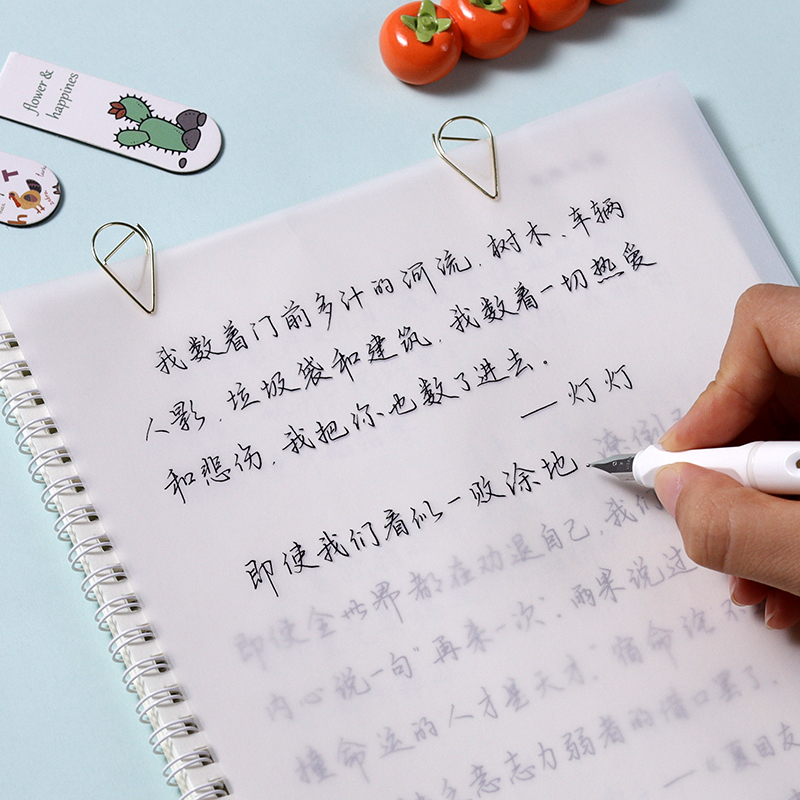 flower &
happines
我数着门前多汁的河流、树木、车辆
人影、垃圾袋和建筑，我数着一切热爱
和悲伤，我把你也数了进去。
——灯灯
即使我们看似一败涂地、潦倒
即使全世界都在劝退自己，我们
内心说一句"再来一次"。雨果说过
撞命运的人才是天才，宿命论不
意志力弱者的借口罢了。
——《夏目友